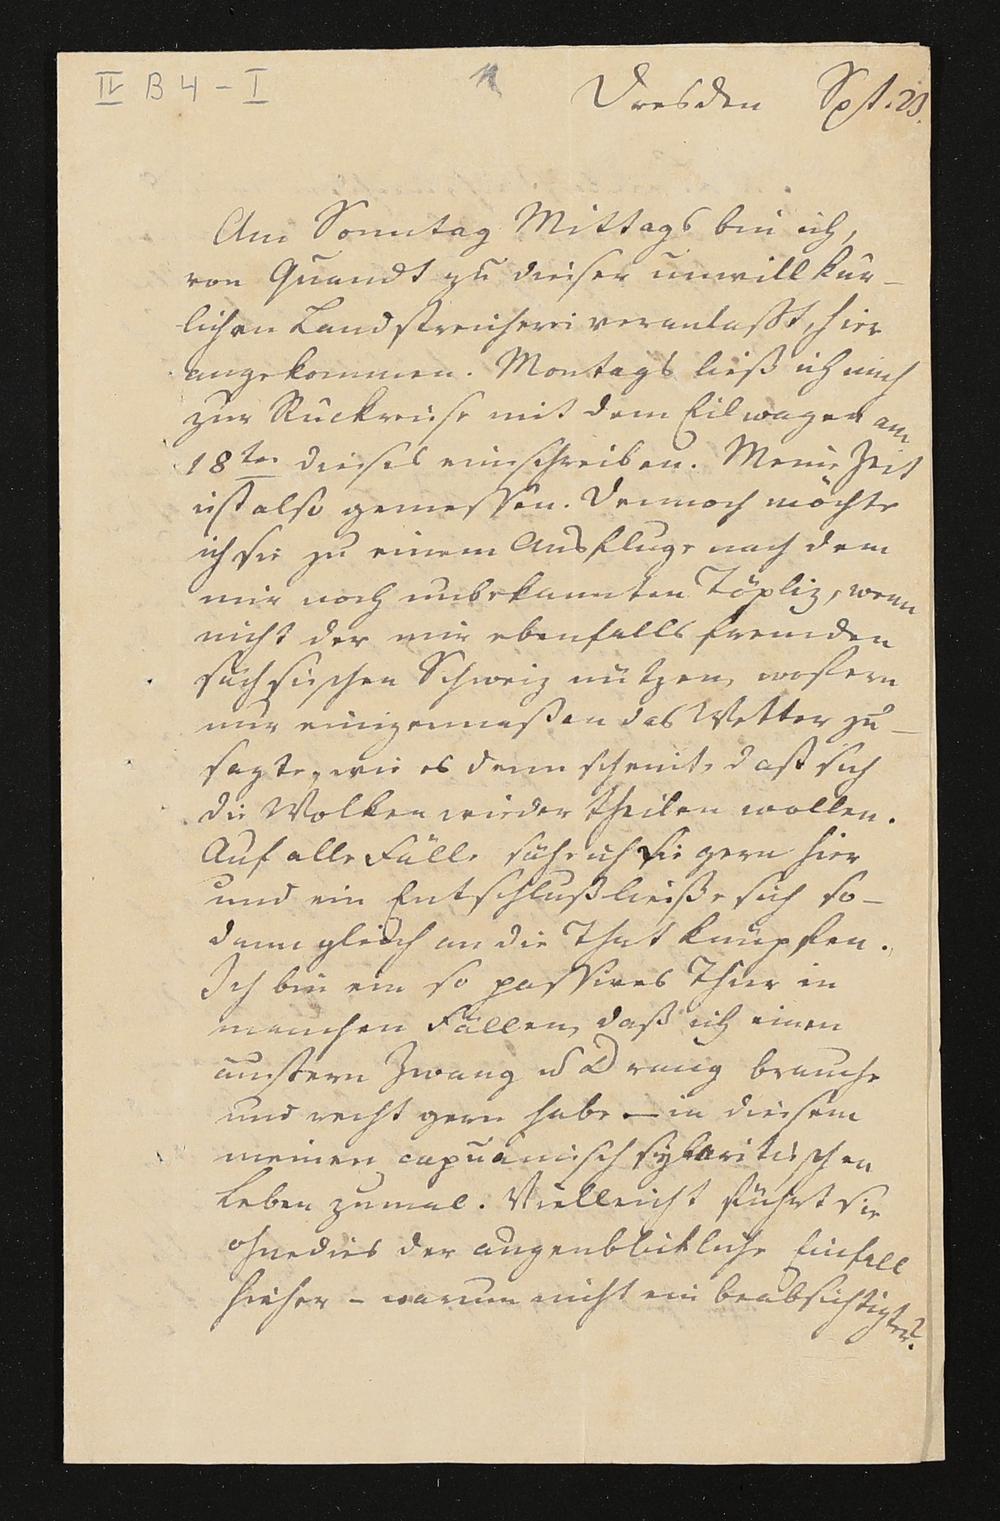 IV B 4 - I
Dresden Spt. 23.
Am Sonntag Mittags bin ich,
von Quandt zu dieser unwillkür-
lichen Landstreicherei veranlaßt, hier
angekommen. Montags ließ ich mich
zur Rückreise mit dem Eilwagen am
18ten dieses einschreiben. Meine Zeit
ist also gemessen. Dennoch möchte
ich sie zu einem Ausfluge nach dem
mir noch unbekannten Töpliz, wenn
nicht der mir ebenfalls fremden
sächsischen Schweiz nützen, wofern
nur einigermaßen das Wetter zu-
sagte, wie es denn scheint, daß sich
die Wolken wieder theilen wollen.
Auf alle Fälle sähe ich sie gern hier
und ein Entschluß ließe sich so-
dann gleich an die That knüpfen.
Ich bin ein so passives Thier in
manchen Fällen, daß ich einen
äußern Zwang u Drang brauche
und recht gern habe – in diesem
meinen capuanisch sybaritischen
Leben zumal. Vielleicht führt sie
ohnedies der augenblickliche Einfall
hieher – warum nicht ein beabsichtigter?